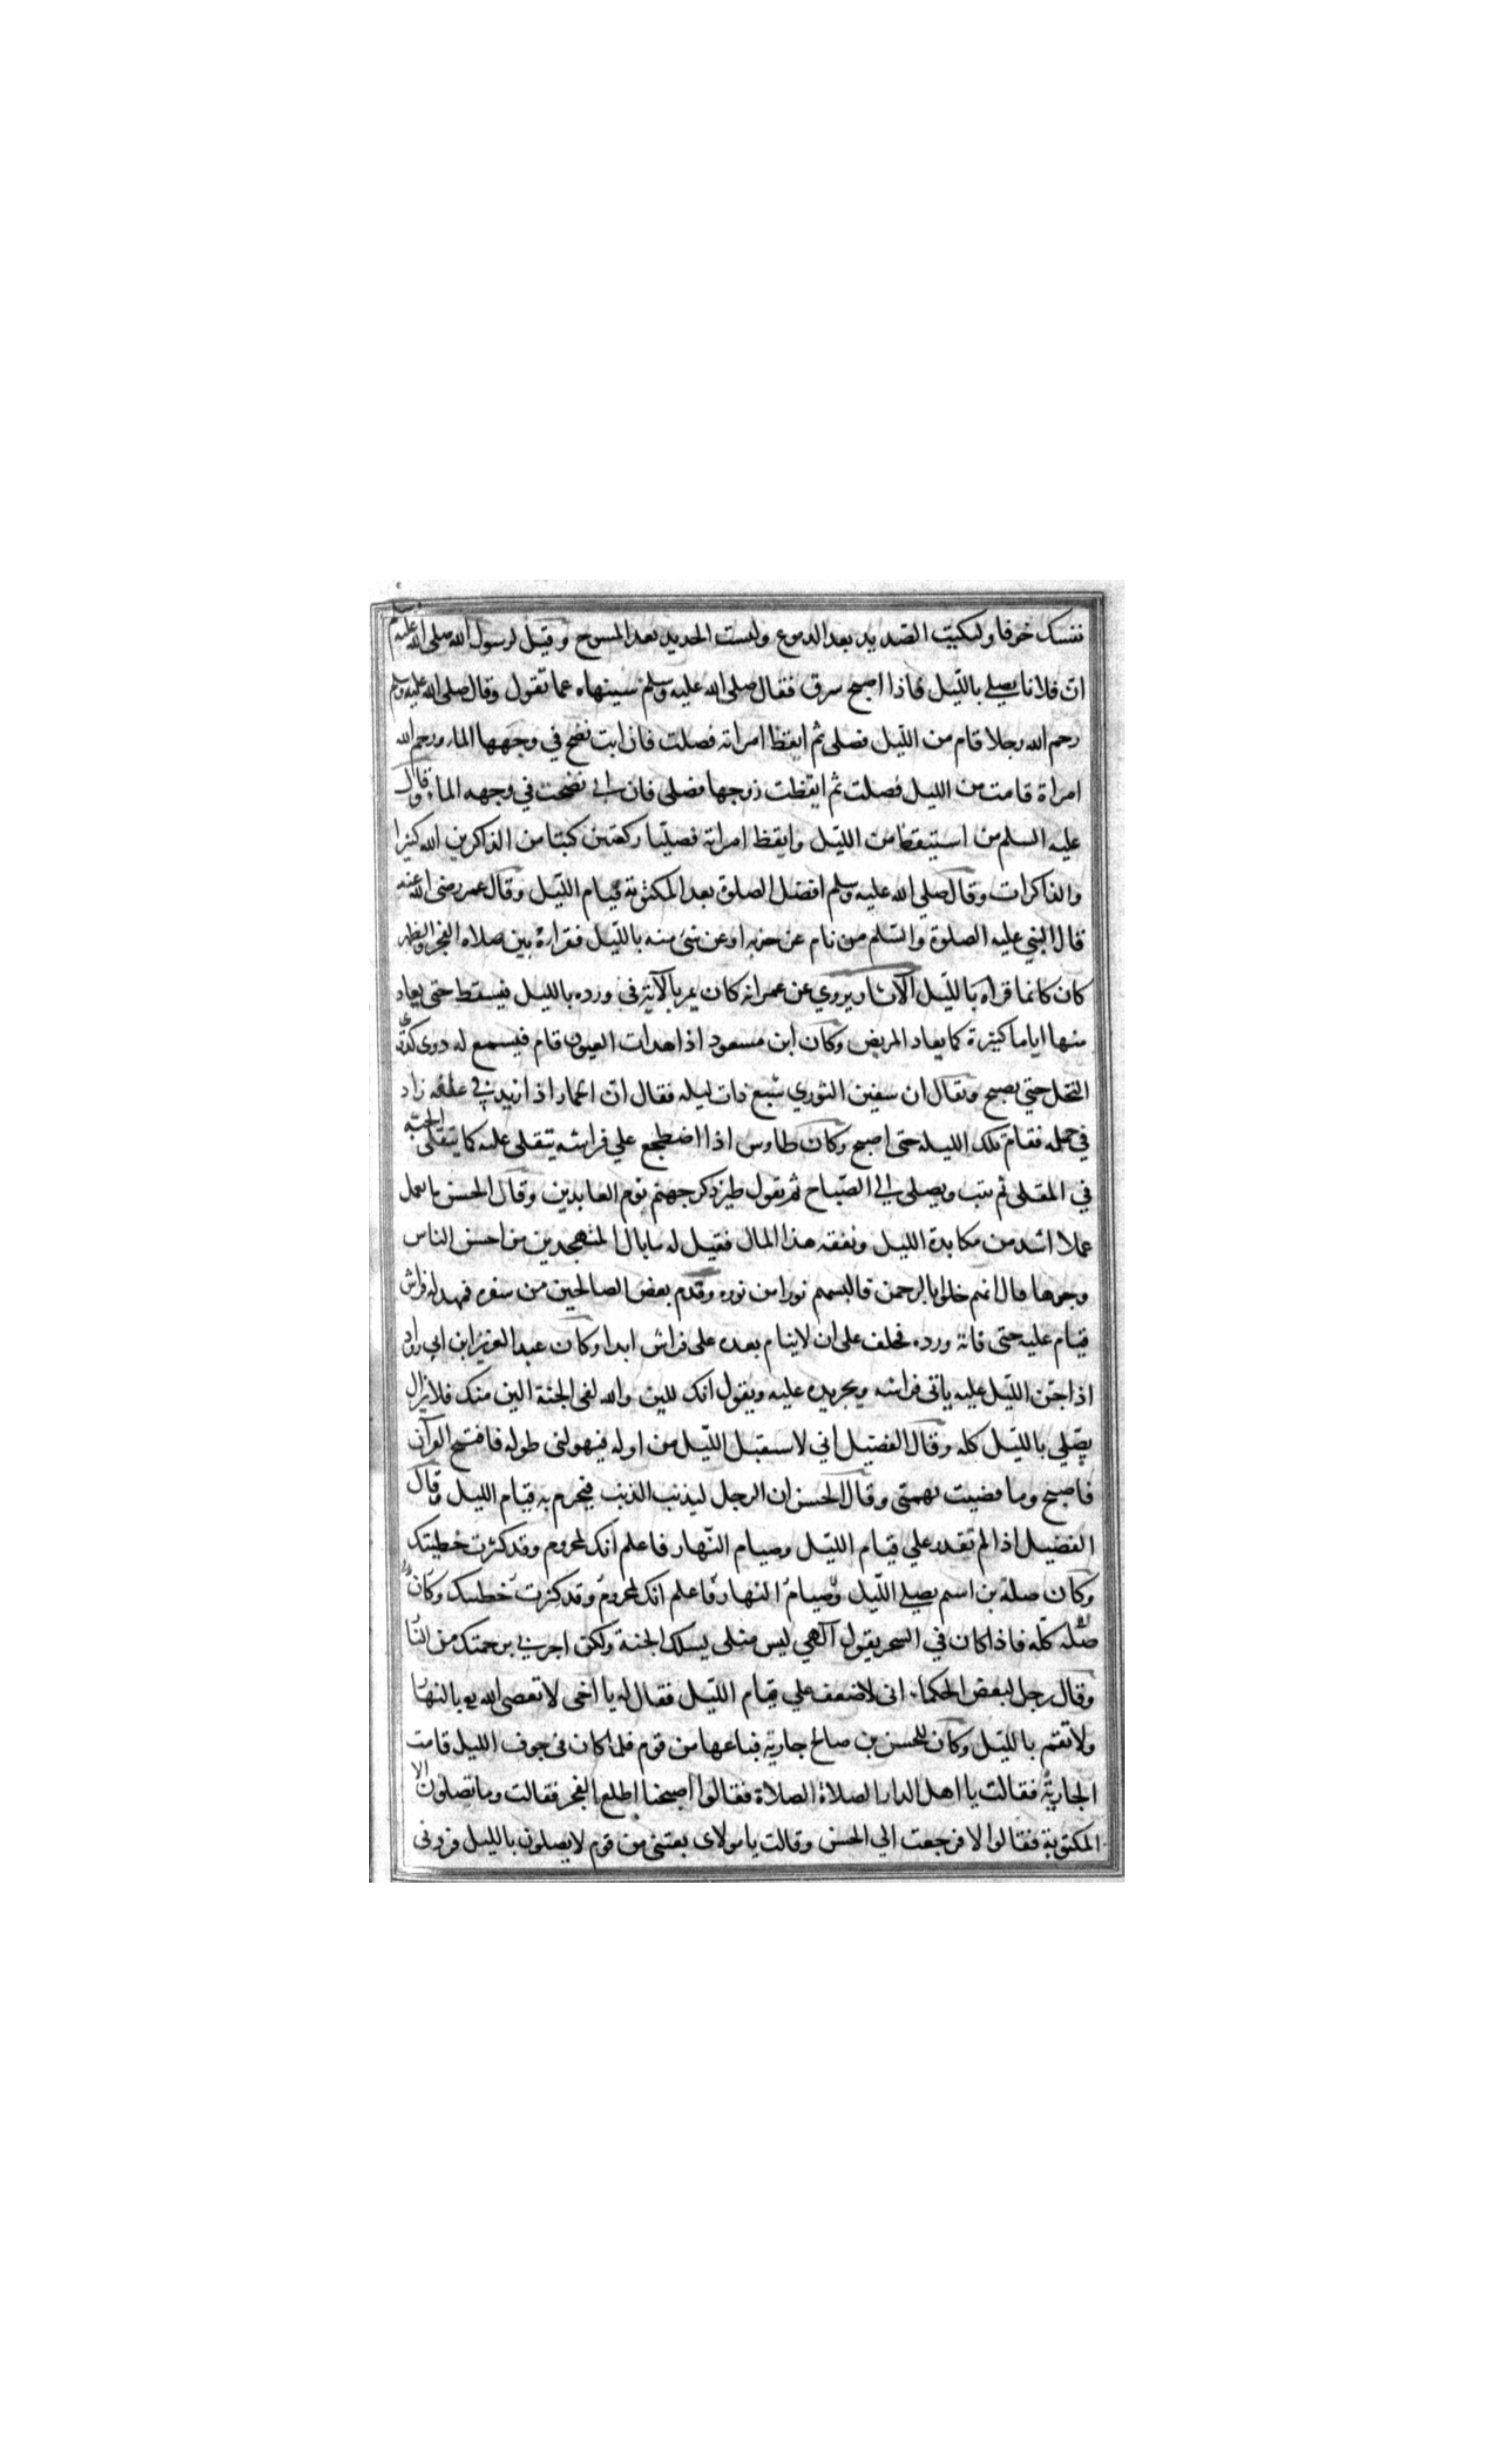 نفسك خوفا ولبكيت الصديد بعد الدموع ولبست الحديد بعد المسوح وقيل لرسول الله صلى الله عليه وسلم
ان فلانا يصلي بالليل فاذا اصبح سرق فقال صلى الله عليه وسلم سينهاه عما تقول وقال صلى الله عليه وسلم
رحم الله رجلا قام من الليل فصلى ثم ايقظ امراته فصلت فان ابت نضح في وجهها الماء ورحم الله
امراة قامت من الليل فصلت ثم ايقظت زوجها فصلى فان ابى نضحت في وجهه الماء وقال
عليه السلم من استيقظ من الليل وايقظ امراته فصليا ركعتين كتبا من الذاكرين الله كثيرا
والذاكرات وقال صلى الله عليه وسلم افضل الصلوة بعد المكتوبة قيام الليل وقال عمر رضى الله عنه
قال النبي عليه الصلوة والسلم من نام عن حزبه او عن شئ منه بالليل فقراه بين صلاه الفجر والظهر
كان كانما قراه بالليل الآثار يروي عن عمر انه كان يمر بالآية في ورده بالليل فيسقط حتى يعاد
منها اياما كثيرة كما يعاد المريض وكان ابن مسعود اذا هدات العيون قام فيسمع له دوى كدوى
النحل حتي يصبح ويقال ان سفين الثوري شبع ذات ليله فقال ان الحمار اذا زيد في علفه زاد
في عمله فقام تلك الليله حتى اصبح وكان طاوس اذا اضطجع علي فراشه يتقلى عليه كما يتقلى الحبة
في المقلى ثم يثب ويصلى الى الصباح ثم يقول طير ذكر جهنم نوم العابدين وقال الحسن ما نعمل
عملا اشد من مكابدة الليل ونفقه هذا المال فقيل له ما بال المتهجدين من احسن الناس
وجوها قال انهم خلوا بالرحمن فالبسهم نورا من نوره وقدم بعض الصالحين من سفره فمهد له فراش
قيام عليه حتى فاته ورده فحلف على ان لاينام بعده على فراش ابدا وكان عبد العزيز ابن ابي رواد
اذا جن الليل عليه ياتى فراشه ويجر يده عليه ويقول انك للين والله لفى الجنة الين منك فلا يزال
يصلي بالليل كله وقال الفضيل اني لاستقبل الليل من اوله فيهولنى طوله فافتتح القرآن
فاصبح وما قضيت نهمتى وقال الحسن ان الرجل ليذنب الذنب فيحرم به قيام الليل وقال
الفضيل اذا لم تقدر علي قيام الليل وصيام النهار فاعلم انك لمحروم وقد كثرت خطيتك
وكان صلة بن اسم يصلي الليل وصيام النهار فاعلم انك لمحروم وقد كثرت خطيتك وكان
صله كله فاذا كان في السحر يقول آلهي ليس مثلى يسلك الجنة ولكن اجرني برحمتك من النار
وقال رجل لبعض الحكماء انى لاضعف علي قيام الليل فقال له يا اخى لا تعصى الله تع بالنهار
ولا تقم بالليل وكان للحسن بن صالح جارية فباعها من قوم فلما كان فى جوف الليل قامت
الجارية فقالت يا اهل الدار الصلاة الصلاة فقالوا اصبحنا اطلع الفجر فقالت وما تصلون الا
المكتوبة فقالوا لا فرجعت الي الحسن وقالت يا مولاى بعتنى من قوم لايصلون بالليل فردنى